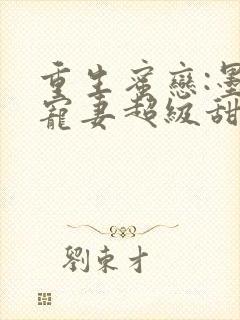 重生蜜戀:墨
寵妻超級甜
劉東才